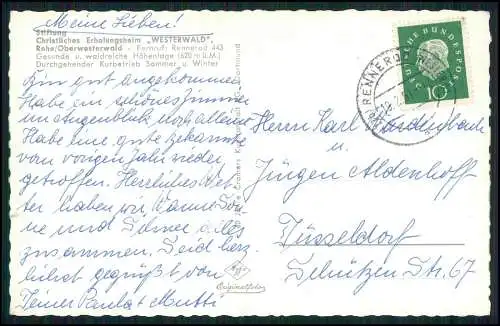 Meine Lieben!
Stiftung
Christliches Erholungsheim „WESTERWALD"
Rehe/Oberwesterwald - Fernruf: Rennerod 443
Gesunde u. waldreiche Höhenlage (620 m ü.M.)
Durchgehender Kurbetrieb Sommer u. Winter
Bin gut angekommen
Habe ein schönes Zimmer
im Augenblick noch allein
Habe eine gute Bekannte
vom vorigen Jahr wieder
getroffen. Herrliches Wet-
ter haben wir, Sonne
und Schnee alles
zusammen. Seid herz-
lichst gegrüßt von
Deiner Paula + Mutti
Agfa
Originalfoto
DEUTSCHE BUNDESPOST
10
RENNEROD
Herrn Karl
u
Jürgen Aldenhoff
Düsseldorf
Schützen Str. 67